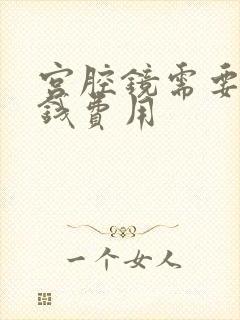 宫腔镜需要
钱費用
一个女人